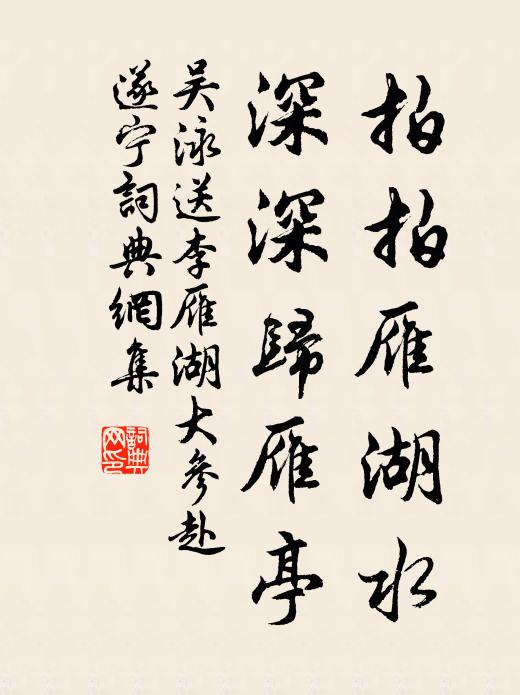 拍拍雁湖水
深深歸雁亭
吴泳送李雁湖大參赴
遂宁詞典網集
詞典網印